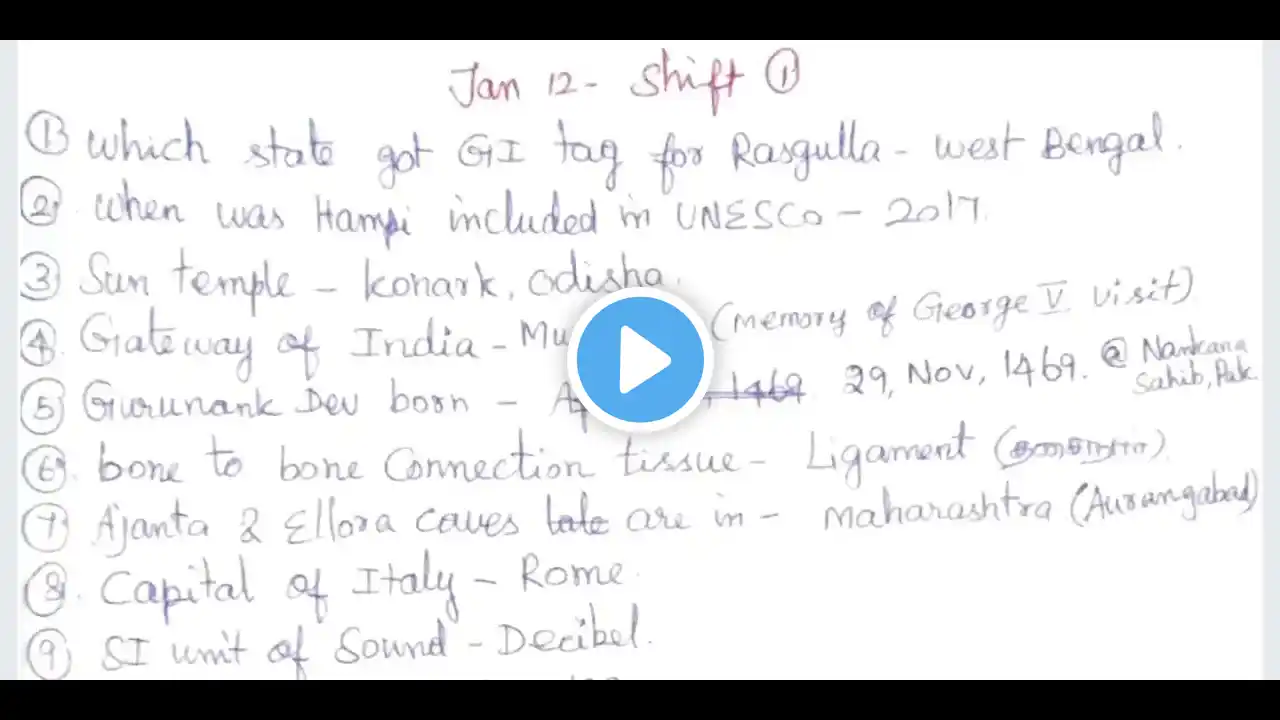 Jan 12 - Shift ①
① Which state got GI tag for Rasgulla - West Bengal.
② When was Hampi included in UNESCO - 2017.
③ Sun temple - Konark, Odisha.
④ Gateway of India - Mu (Memory of George V visit)
⑤ Gurunank Dev born - 1469 29, Nov, 1469. @ Nankana Sahib, Pak.
⑥ bone to bone Connection tissue - Ligament
⑦ Ajanta & Ellora caves are in - Maharashtra (Aurangabad)
⑧ Capital of Italy - Rome.
⑨ SI unit of Sound - Decibel.